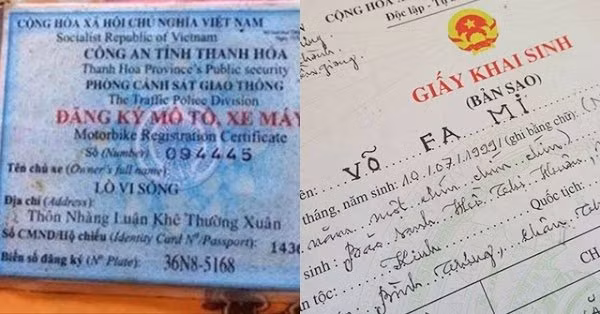 CỘNG HÒA XÃ HỘI CHỦ NGHĨA VIỆT NAM
Socialist Republic of Vietnam
CÔNG AN TỈNH THANH HÓA
Thanh Hoa Province's Public security
PHÒNG CẢNH SÁT GIAO THÔNG
The Traffic Police Division
ĐĂNG KÝ MÔ TÔ, XE MÁY
Motorbike Registration Certificate
Số (Number) 094445
Tên chủ xe (Owner's full name):
LÒ VI SÓNG
Địa chỉ (Address):
Thôn Nhàng Luận Khê Thường Xuân
Số CMND/Hộ chiếu (Identity Card N°/Passport): 1436
Biển số đăng ký (N° Plate): 36N8-5168
CỘNG HÒA
Độc lập - Tự
GIẤY KHAI SINH
(BẢN SAO)
VÕ FA MI
tháng, năm sinh: 10/07/1999 (ghi bằng chữ)
năm một chín chín chín
sinh:
Quốc tịch:
tộc: Kinh